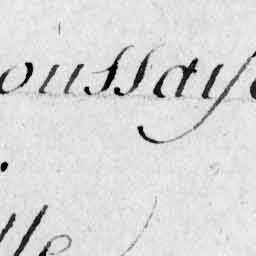 oussaye
lle